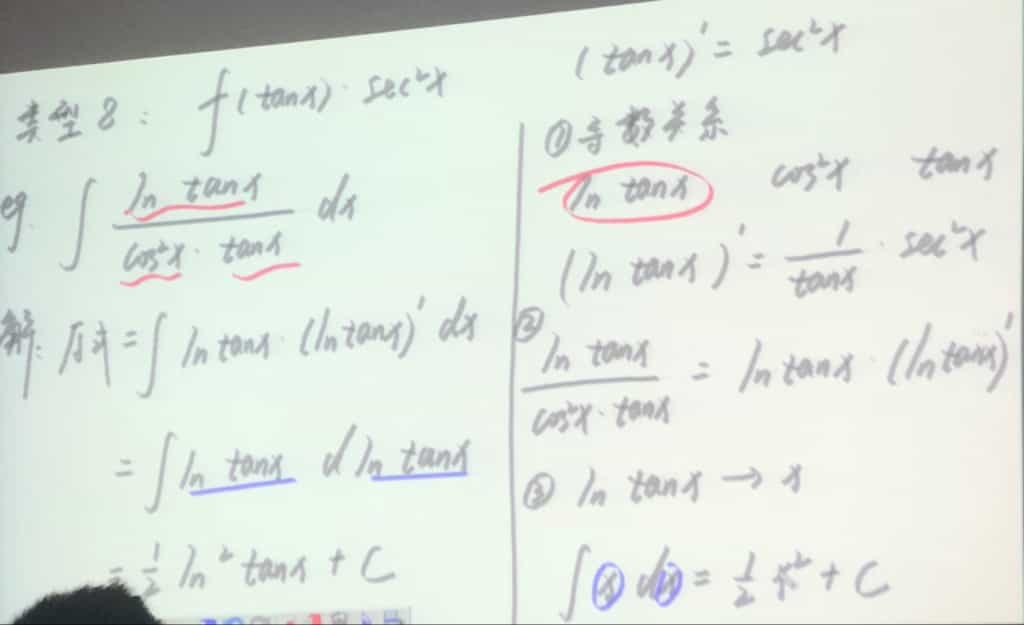 类型8: f(tanx)·sec²x
eg. ∫ ln tanx / (cos²x · tanx) dx
解: 原式 = ∫ ln tanx · (ln tanx)' dx
= ∫ ln tanx d ln tanx
= 1/2 ln² tanx + C
(tanx)' = sec²x
①导数关系
ln tanx cos²x tanx
(ln tanx)' = 1/tanx · sec²x
② ln tanx / (cos²x · tanx) = ln tanx · (ln tanx)'
③ ln tanx → x
∫ x dx = 1/2 x² + C